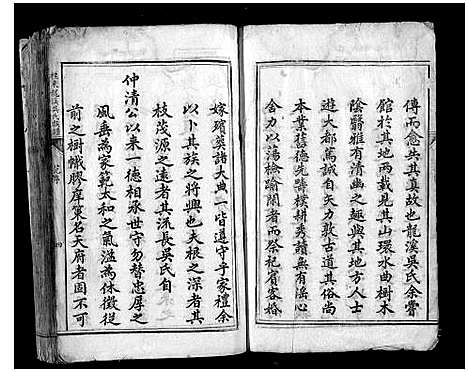 傳而愈失其真故也龍溪吳氏余嘗
館於其地兩載見其山環水曲樹木
陰翳雅有清幽之趣與其地方人士
遊大都為誠自矢力敦古道其俗尚
本業舊德先疇樸耕秀讀無有淫心
舍力以蕩檢踰閑者而祭祀賓客婚
嫁殯葬諸大典一皆遵守乎家禮余
以卜其族之將興也夫根之深者其
枝茂源之遠者其流長吳氏自
仲清公以來一德相承世守勿替忠厚之
風垂為家範太和之氣滋為休徵從
前之樹幟膠庠策名天府者固不可